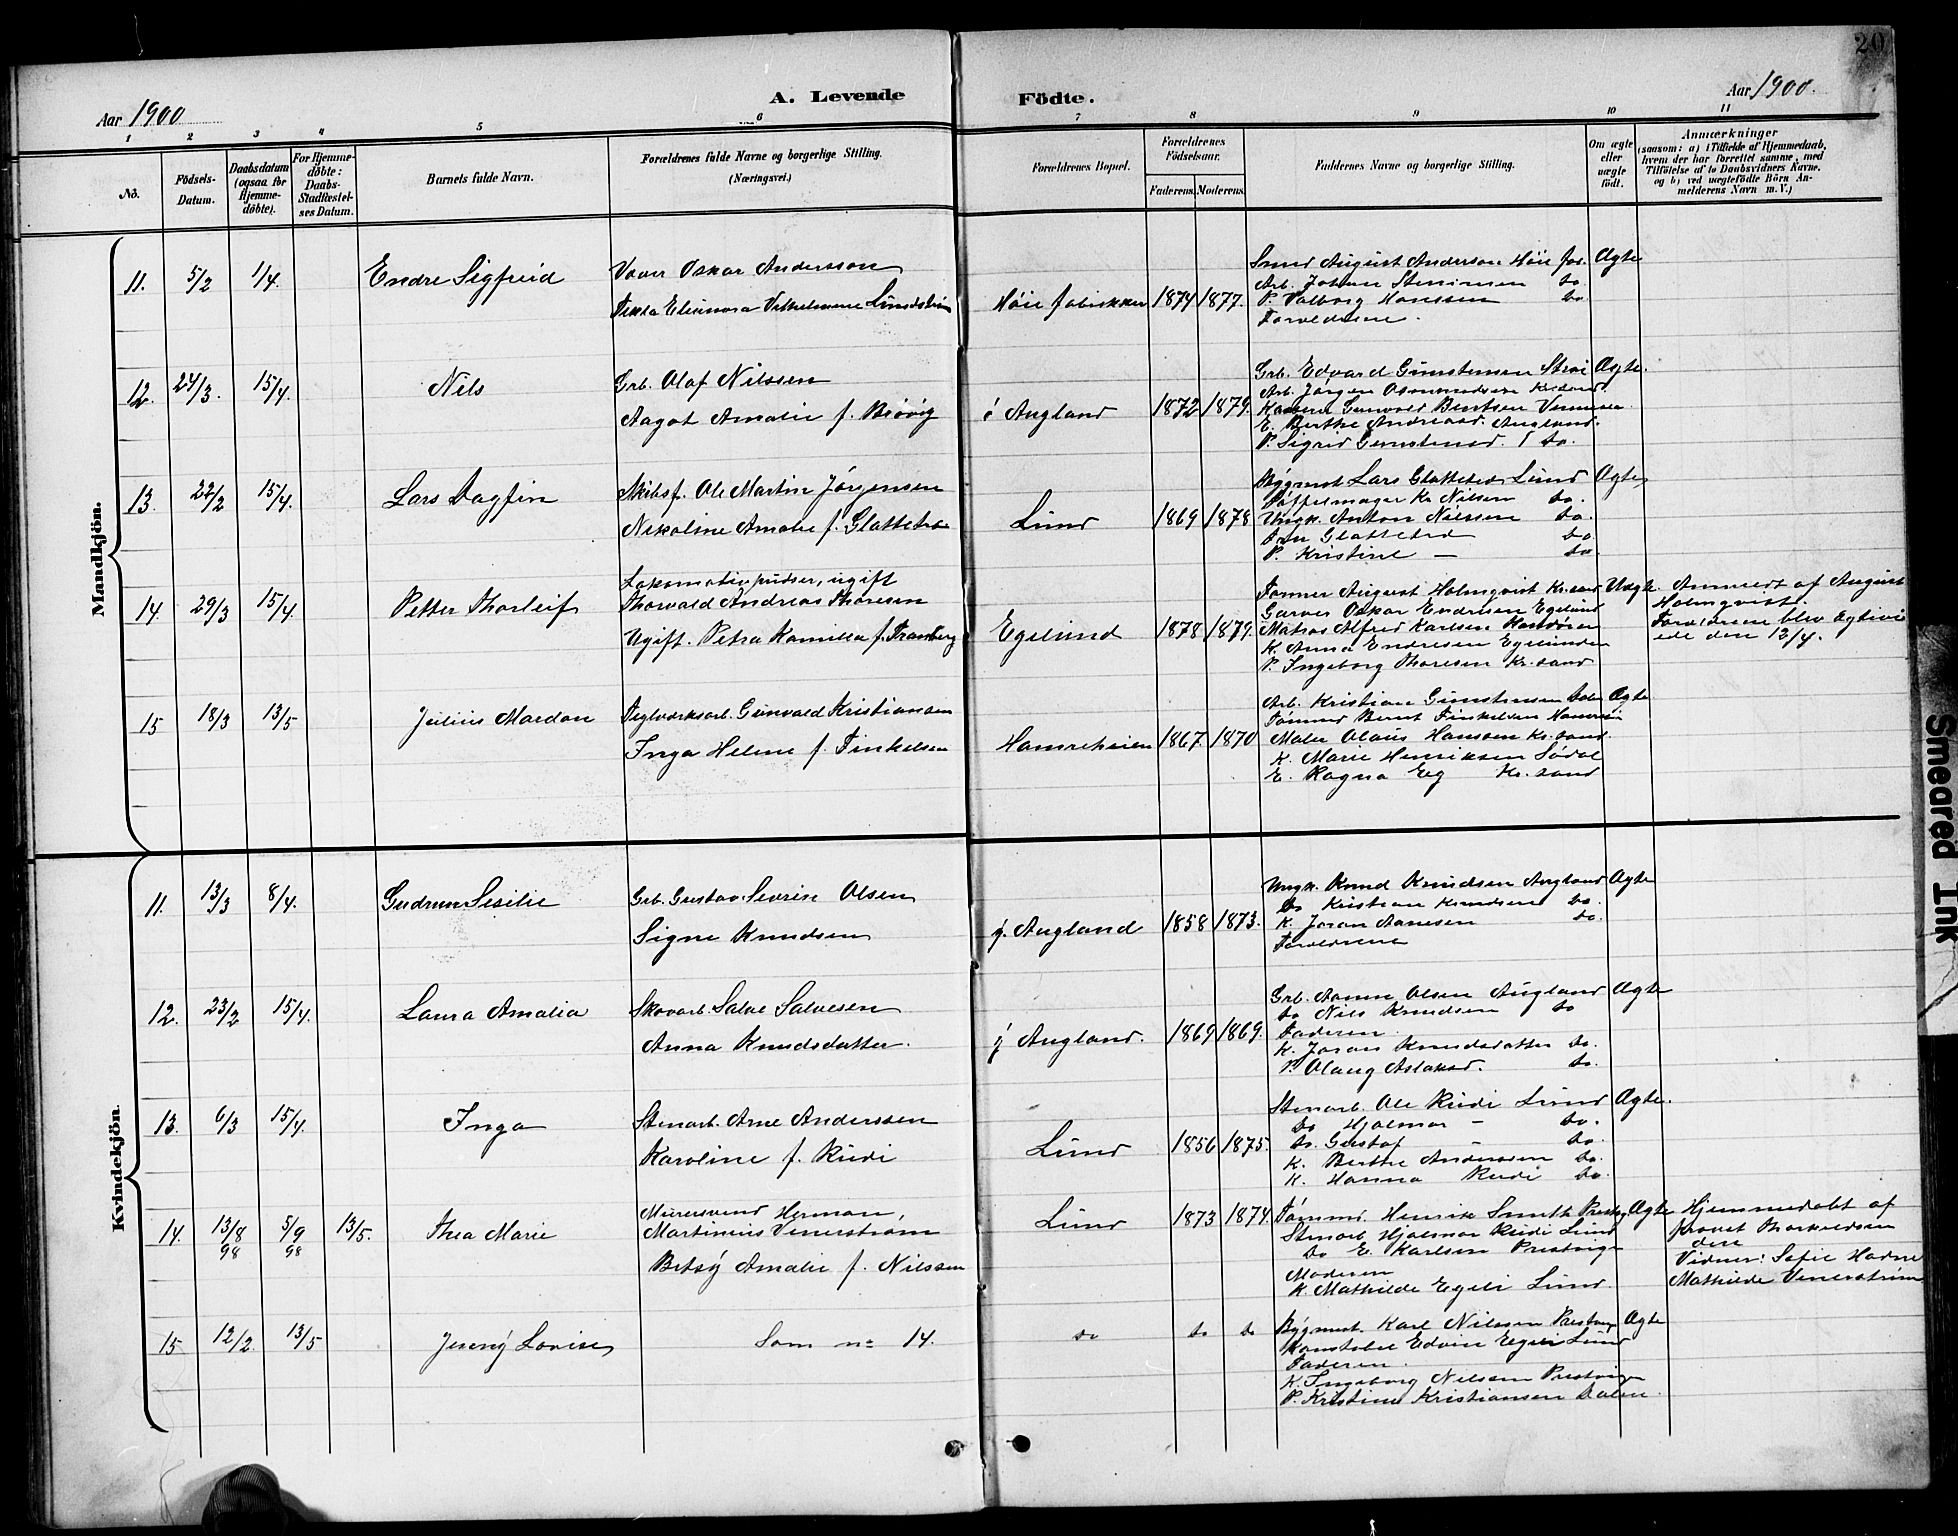 20
Aar 1900
A. Levende
Födte.
Aar 1900.
1 2 3 4 5 6 7 8 9 10 11
No.
Födsels-Datum.
Daabsdatum (ogsaa for Hjemme-döbte).
For Hjemme-döbte: Daabs-Stadfæstel-ses Datum.
Barnets fulde Navn.
Forældrenes fulde Navne og borgerlige Stilling.
(Næringsvei.)
Forældrenes Bopæl.
Forældrenes Födselsaar.
Faderens. Moderens.
Faddernes Navne og borgerlige Stilling.
Om ægte eller uægte födt.
Anmærkninger
(saasom: a) i Tilfælde af Hjemmedaab,
hvem der har forrettet samme, med
Tilföielse af to Daabsvidners Navne,
og b) ved uægtefödte Börn An-
melderens Navn m. V.)
Mandkjön.
11. 5/2 1/4. Endre Sigfreid
Væver Oskar Andersson
Tekla Eleonora Vilhelmine Lundström
Høie fabrikker 1874 1877.
Smed August Anderson Høie fas.
Arb. Johan do.
P. Valborg Hanssen do
Forældrene.
Ægte
12. 24/3. 15/4. Nils
Grb. Olaf Nilssen
Aagot Amalie f. Brøvig
Augland 1872 1879.
Grb. Edvard Gunstensen Strai
Arb. Jørgen Osmundsen Kr.sand.
Gunvald Bentsen Vennesla
E. Berthe Andreasd. Augland.
P. Sigrid Gunstensd. do.
Ægte.
13. 22/2 15/4. Lars Dagfin
Skibsf. Ole Martin Jørgensen
Nikoline Amalie f. Glattetre
Lund 1869 1878
Bygmest Lars Glattetre Lund
Tøffelmager Kr. Nilsen do.
Ungk. Anton Nilssen do.
Glattetre do.
P. Kristine — do
Ægte
14. 29/3 15/4. Petter Thorleif
Lokomotivpudser, ugift
Thorvald Andreas Thoresen
Ugift. Petra Kamilla f. Tranberg
Egelund 1878 1879.
Tømmer August Holmqvist Kr.sand
Garver Oskar Endresen Egelund
Matros Alfred Karlsen
K. Anna Endresen Egelunden
P. Ingeborg Thoresen Kr.sand
Uægte.
Anmeldt af August
Holmqvist.
Forældrene blev ægtevi
ede den 12/4.
15 18/3 13/5 Julius Mardon
Teglværksarb. Gunvald Kristiansen
Inga Helene f. Finkelsen
Hamreheien 1867 1870
Arb. Kristian Gunstensen Dalen
Tømmd Bernt Finkelsen
Maler Olaus Hanssen Kr.sand.
K. Marie Henriksen Sødal
E. Ragna Eeg Kr.sand
Ægte
Kvindekjön.
11. 13/3 8/4. Gudrun Sesilie
Grb. Gustav Severin Olsen
Signe Knudsen
Augland 1858 1873.
Ungk. Knud Knudsen Augland
do Kristian Knudsen do.
K. Joran Aanesen do.
Forældrene
Ægte
12. 23/2 15/4. Laura Amalia
Skovarb. Salve Salvesen
Anna Knudsdatter.
Augland. 1869 1869.
Grb. Aanen Olsen Augland
do Nils Knudsen do
Faderen.
K. Joran Knudsdatter do.
P. Olaug Aslaksd. do.
Ægte
13. 6/3 15/4. Inga
Stenarb. Arne Anderssen
Karoline f. Rudi
Lund 1856 1875.
Stenarb. Ole Rudi Lund
do Hjalmar — do.
do. Gustaf — do.
K. Berthe Anderssen do.
K. Hanna Rudi do.
Ægte.
14. 13/8 98 5/9 98 13/5. Thea Marie
Murersvend Herman
Martinius Venerstrøm
Betsy Amalie f. Nilssen
Lund 1873 1874.
Tømmd. Henrik Smith
Stenarb Hjalmar Rudi Lund
do E. Karlsen Prestvigen
Moderen
K. Mathilde Egeli Lund
Ægte
Hjemmedøbt af
provst Thorkildsen
den
Vidner: Sofie
Mathilde Venerstrøm
15 12/2. 13/5 Jenny Lovise
Som no 14.
do do do
Bygmest. Karl Nilssen
Konstabel Edvin Egeli Lund
Faderen.
K. Ingeborg Nilssen Prestvigen
P. Kristine Kristiansen Dalen.
Ægte
Smeared Ink